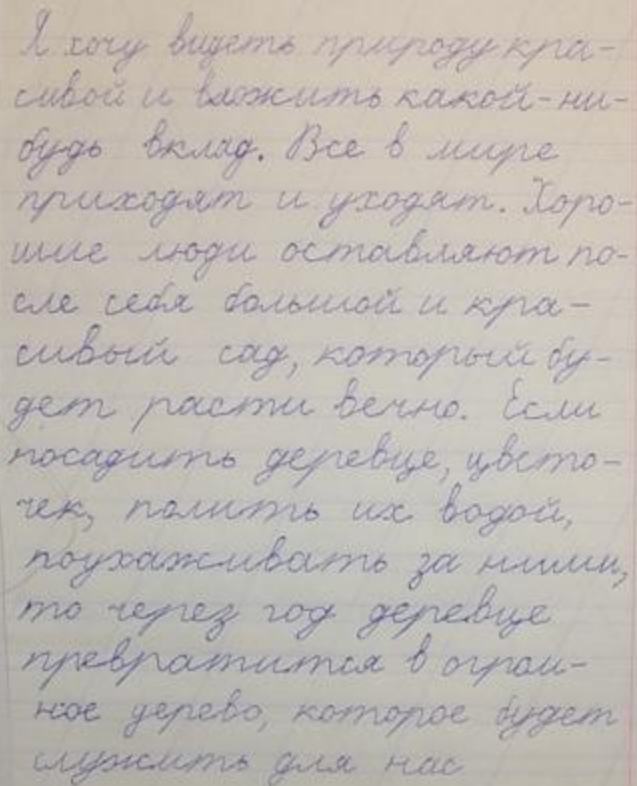 Я хочу видеть природу кра-
сивой и вложить какой-ни-
будь вклад. Все в мире
приходят и уходят. Хоро-
шие люди оставляют по-
сле себя большой и кра-
сивый сад, который бу-
дет расти вечно. Если
посадить деревце, цвето-
чек, полить их водой,
поухаживать за ними,
то через год деревце
превратится в огром-
ное дерево, которое будет
служить для нас